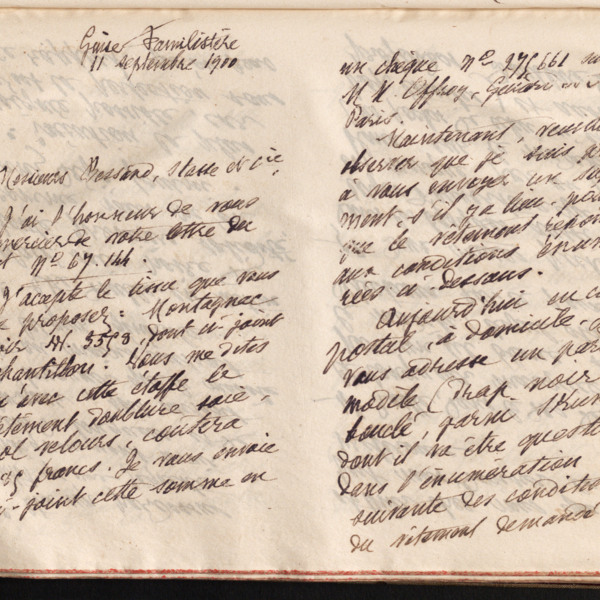 Guise Familistère
11 septembre 1900
Messieurs Bessand, Stasse et Cie,
J'ai l'honneur de vous
remercier de votre lettre du
ct Nº 67.144.
J'accepte le tissu que vous
me proposez: Montagnac
noir dont ci-joint
échantillon. Vous me dites
qu'avec cette étoffe le
vêtement doublure soie,
col velours, coûtera
francs. Je vous envoie
ci-joint cette somme en
un chèque nº 275661 su
Offroy, Guiard et
Paris.
Maintenant, veuill
observer que je suis
à vous envoyer un su
ment, s'il y a lieu, po
que le vêtement répon
aux conditions énum
rées ci-dessous.
Aujourd'hui en co
postal, à domicile,
vous adresse un par
modèle (drap noir
bouclé, parmi
dont il va être questi
dans l'énumération
suivante des conditio
du vêtement demandé